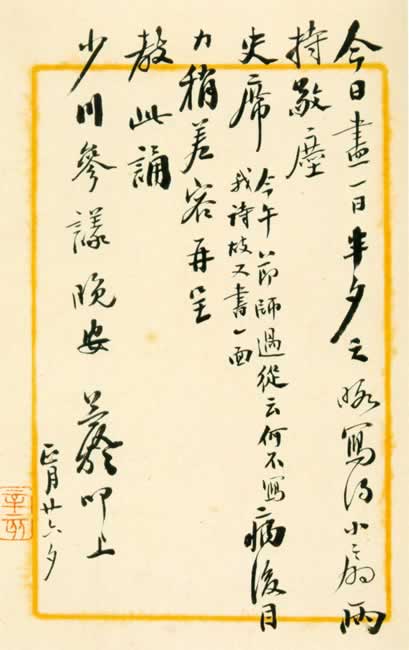 今日盡一日半夕之暇寫得小扇兩
持敬塵
史席
今午節師過從云何不寫
我詩故又書一面
病後目
力稍差容再呈
教此誦
少川參議晚安
叩上
正月廿六夕